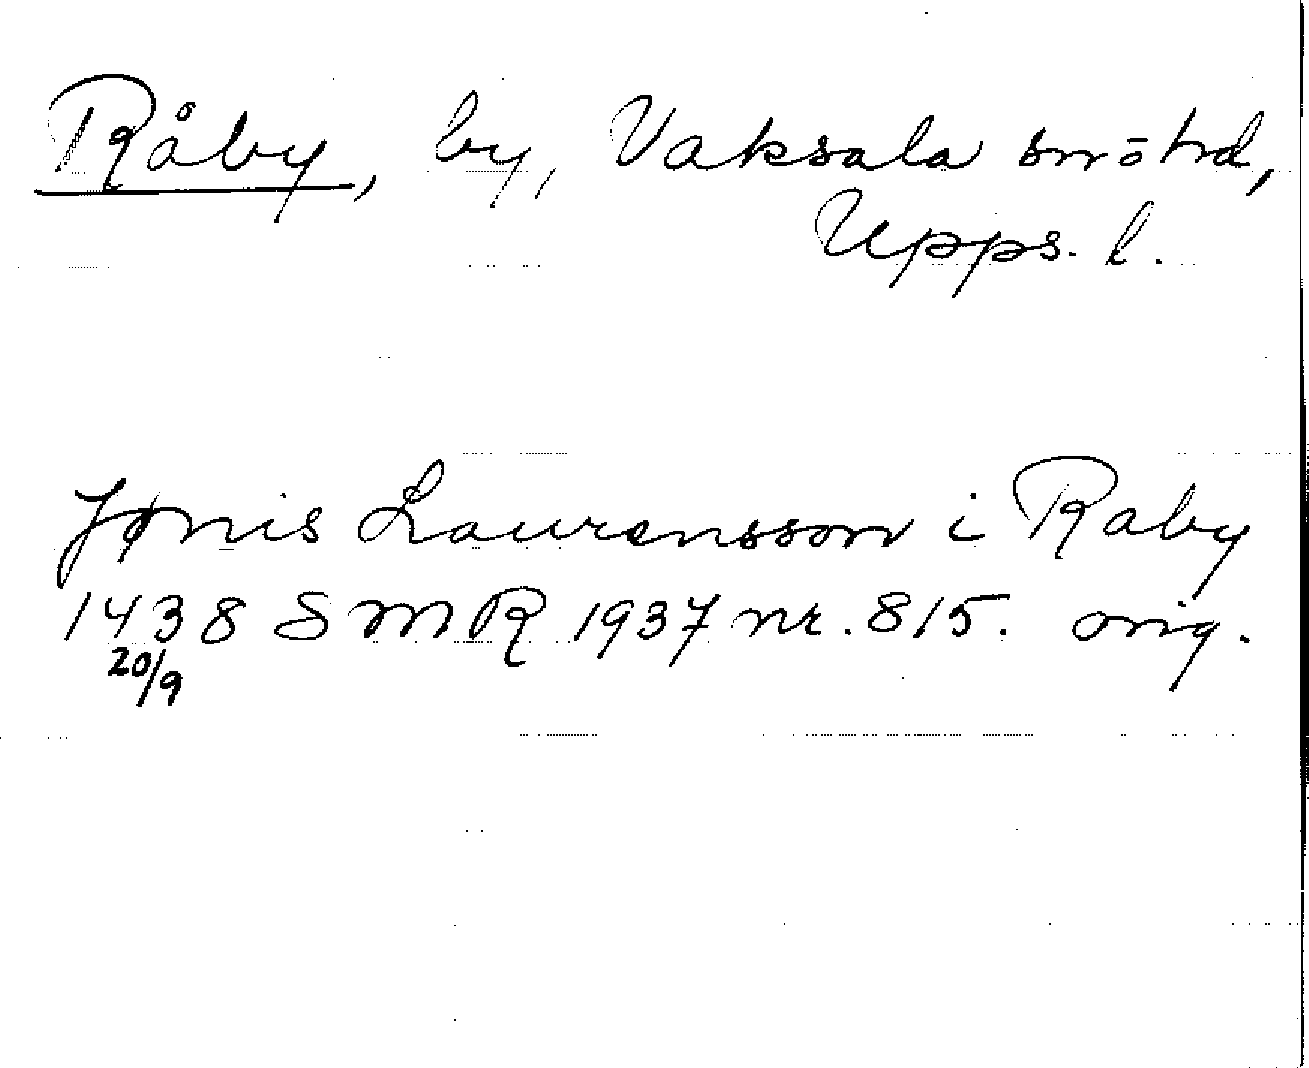 Råby, by, Vaksala sn o hd,
Upps. l.
Jønis Laurensson i Raby
1438 SMR 1937 nr. 815. orig.
20/9